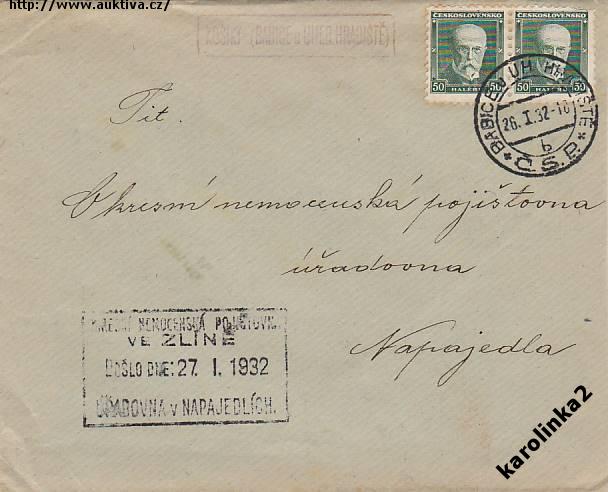 http://www.auktiva.cz/
(BABICE u UHER. HRADIŠTĚ)
ČESKOSLOVENSKO ČESKOSLOVENSKO
50 HALÉŘŮ 50 50 50
BABICE U UH. HRADIŠTĚ
26.I.32-18
b
Č.S.P.
Tit.
Okresní nemocenská pojišťovna
úřadovna
Napajedla
NEMOCENSKÁ
VE ZLÍNĚ
DOŠLO DNE: 27. I. 1932
ÚŘADOVNA v NAPAJEDLÍCH.
karolinka2